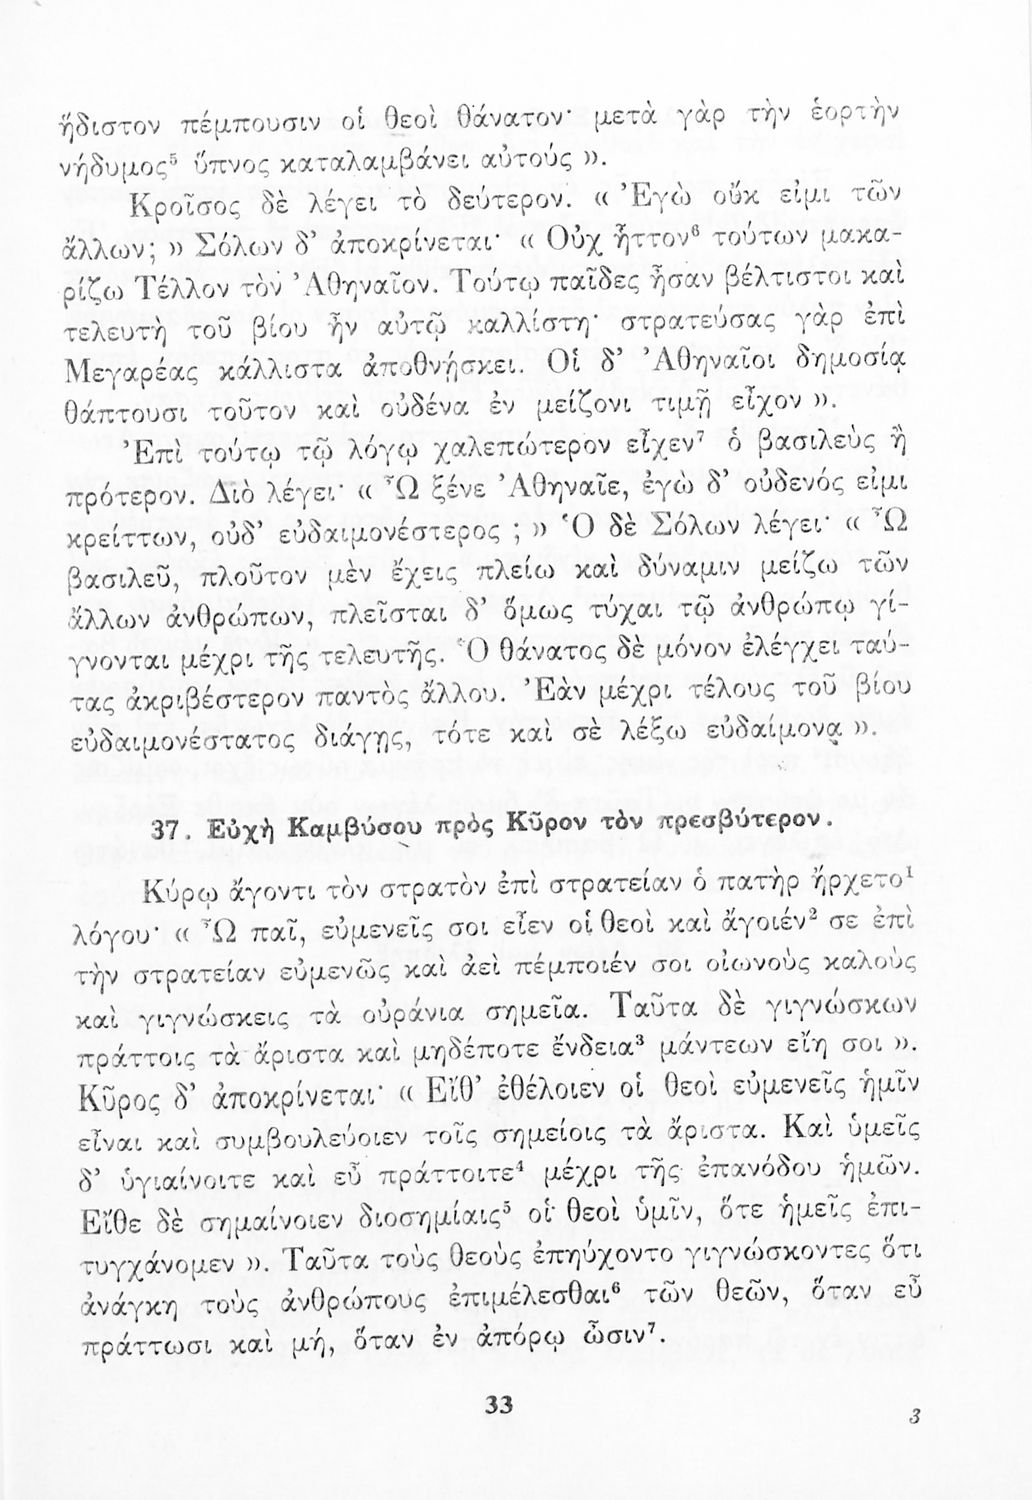 ἥδιστον πέμπουσιν οἱ θεοὶ θάνατον· μετὰ γὰρ τὴν ἑορτὴν
νήδυμος⁵ ὕπνος καταλαμβάνει αὐτούς ».
Κροῖσος δὲ λέγει τὸ δεύτερον. « Ἐγὼ οὔκ εἰμι τῶν
ἄλλων; » Σόλων δ’ ἀποκρίνεται· « Οὐχ ἧττον⁶ τούτων μακα-
ρίζω Τέλλον τὸν Ἀθηναῖον. Τούτῳ παῖδες ἦσαν βέλτιστοι καὶ
τελευτὴ τοῦ βίου ἦν αὐτῷ καλλίστη· στρατεύσας γὰρ ἐπὶ
Μεγαρέας κάλλιστα ἀποθνῄσκει. Οἱ δ’ Ἀθηναῖοι δημοσίᾳ
θάπτουσι τοῦτον καὶ οὐδένα ἐν μείζονι τιμῇ εἶχον ».
Ἐπὶ τούτῳ τῷ λόγῳ χαλεπώτερον εἶχεν⁷ ὁ βασιλεὺς ἢ
πρότερον. Διὸ λέγει· « Ὦ ξένε Ἀθηναῖε, ἐγὼ δ’ οὐδενός εἰμι
κρείττων, οὐδ’ εὐδαιμονέστερος ; » Ὁ δὲ Σόλων λέγει· « Ὦ
βασιλεῦ, πλοῦτον μὲν ἔχεις πλείω καὶ δύναμιν μείζω τῶν
ἄλλων ἀνθρώπων, πλεῖσται δ’ ὅμως τύχαι τῷ ἀνθρώπῳ γί-
γνονται μέχρι τῆς τελευτῆς. Ὁ θάνατος δὲ μόνον ἐλέγχει ταύ-
τας ἀκριβέστερον παντὸς ἄλλου. Ἐὰν μέχρι τέλους τοῦ βίου
εὐδαιμονέστατος διάγῃς, τότε καὶ σὲ λέξω εὐδαίμονα ».
37. Εὐχὴ Καμβύσου πρὸς Κῦρον τὸν πρεσβύτερον.
Κύρῳ ἄγοντι τὸν στρατὸν ἐπὶ στρατείαν ὁ πατὴρ ἤρχετο¹
λόγου· « Ὦ παῖ, εὐμενεῖς σοι εἶεν οἱ θεοὶ καὶ ἄγοιέν² σε ἐπὶ
τὴν στρατείαν εὐμενῶς καὶ ἀεὶ πέμποιέν σοι οἰωνοὺς καλοὺς
καὶ γιγνώσκεις τὰ οὐράνια σημεῖα. Ταῦτα δὲ γιγνώσκων
πράττοις τὰ ἄριστα καὶ μηδέποτε ἔνδεια³ μάντεων εἴη σοι ».
Κῦρος δ’ ἀποκρίνεται· « Εἴθ’ ἐθέλοιεν οἱ θεοὶ εὐμενεῖς ἡμῖν
εἶναι καὶ συμβουλεύοιεν τοῖς σημείοις τὰ ἄριστα. Καὶ ὑμεῖς
δ’ ὑγιαίνοιτε καὶ εὖ πράττοιτε⁴ μέχρι τῆς ἐπανόδου ἡμῶν.
Εἴθε δὲ σημαίνοιεν διοσημίαις⁵ οἱ θεοὶ ὑμῖν, ὅτε ἡμεῖς ἐπι-
τυγχάνομεν ». Ταῦτα τοὺς θεοὺς ἐπηύχοντο γιγνώσκοντες ὅτι
ἀνάγκη τοὺς ἀνθρώπους ἐπιμέλεσθαι⁶ τῶν θεῶν, ὅταν εὖ
πράττωσι καὶ μή, ὅταν ἐν ἀπόρῳ ὦσιν⁷.
33
3